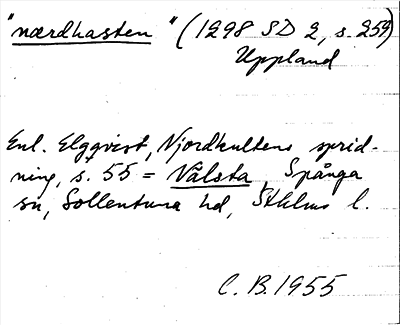 "nærdhasten" (1298 SD 2, s. 259)
Uppland
Enl. Elgqvist, Njordkultens sprid-
ning, s. 55 = Vålsta, Spånga
sn, Sollentuna hd, Sthlms l.
C. B. 1955